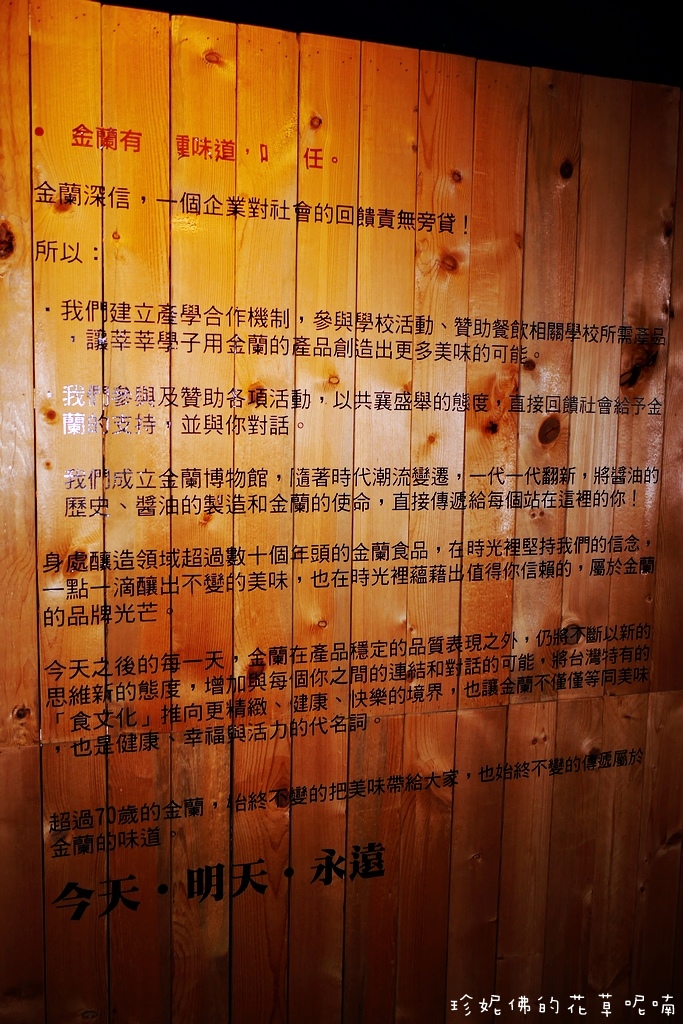 • 金蘭有 種味道， 任。
金蘭深信，一個企業對社會的回饋責無旁貸！
所以：
·我們建立產學合作機制，參與學校活動、贊助餐飲相關學校所需產品
，讓莘莘學子用金蘭的產品創造出更多美味的可能。
·我們參與及贊助各項活動，以共襄盛舉的態度，直接回饋社會給予金
蘭的支持，並與你對話。
我們成立金蘭博物館，隨著時代潮流變遷，一代一代翻新，將醬油的
歷史、醬油的製造和金蘭的使命，直接傳遞給每個站在這裡的你！
身處釀造領域超過數十個年頭的金蘭食品，在時光裡堅持我們的信念，
一點一滴釀出不變的美味，也在時光裡蘊藉出值得你信賴的，屬於金蘭
的品牌光芒。
今天之後的每一天，金蘭在產品穩定的品質表現之外，仍將不斷以新的
思維新的態度，增加與每個你之間的連結和對話的可能，將台灣特有的
「食文化」推向更精緻、健康、快樂的境界，也讓金蘭不僅僅等同美味
，也是健康、幸福與活力的代名詞。
超過70歲的金蘭，始終不變的把美味帶給大家，也始終不變的傳遞屬於
金蘭的味道。
今天·明天·永遠
珍妮佛的花草呢喃